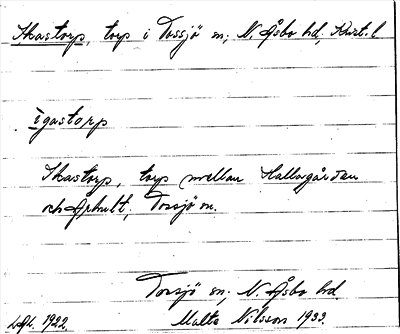 Skastorp, torp i Tossjö sn; N. Åsbo hd, Krist. l
igastorp
Skastorp, torp mellan Hallagården
och Århult, Tossjö sn.
Tossjö sn; N. Åsbo hd.
1922 Malte Nilsson 1933.